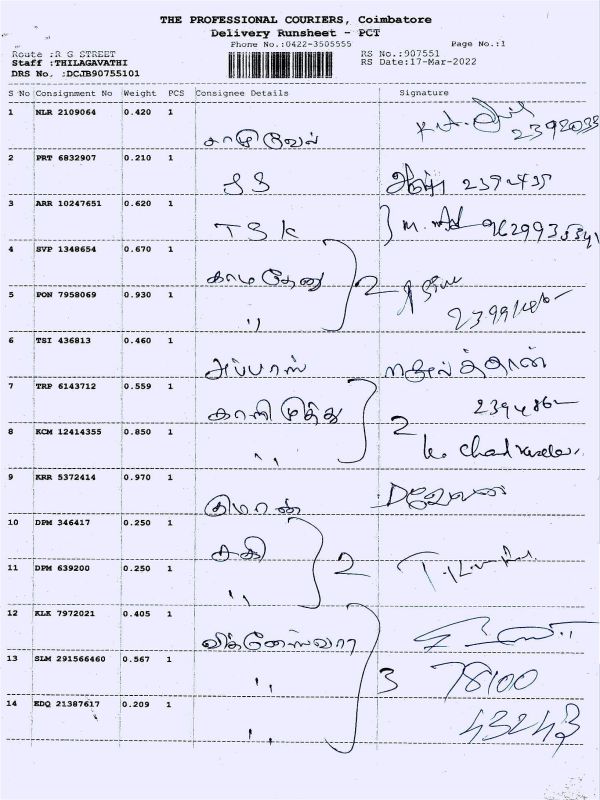 THE PROFESSIONAL COURIERS, Coimbatore
Delivery Runsheet - PCT
Phone No.:0422-3505555 Page No.:1
Route :R G STREET RS No.:907551
Staff :THILAGAVATHI RS Date:17-Mar-2022
DRS No. :DCJB90755101
S No Consignment No Weight PCS Consignee Details Signature
1 NLR 2109064 0.420 1
2 PRT 6832907 0.210 1
SS
3 ARR 10247651 0.620 1
T S K
4 SVP 1348654 0.670 1
காமதேனு 2
5 PON 7958069 0.930 1
"
6 TSI 436813 0.460 1
அப்பாஸ்
7 TRP 6143712 0.559 1
காளிமுத்து 2
8 KCM 12414355 0.850 1
"
9 KRR 5372414 0.970 1
10 DPM 346417 0.250 1
சக்தி 2
11 DPM 639200 0.250 1
"
12 KLK 7972021 0.405 1
விக்னேஸ்வரா
13 SLM 291566460 0.567 1
" 3 78100
14 EDQ 21387617 0.209 1
" 43243